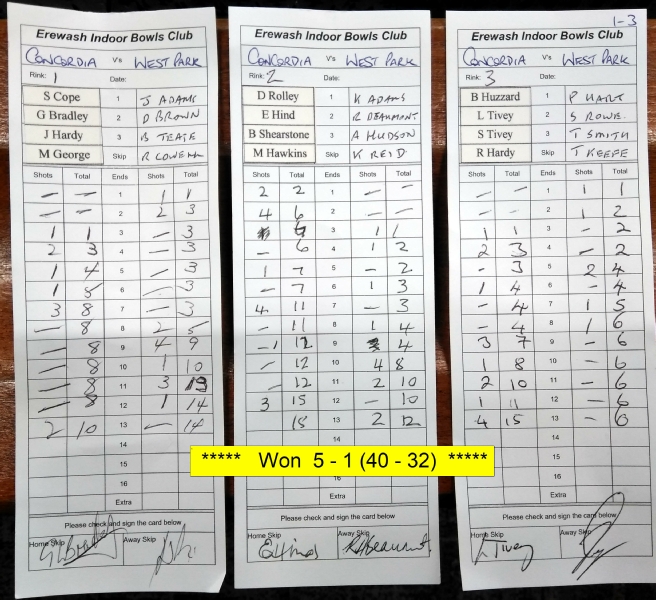 Erewash Indoor Bowls Club
CONCORDIA V's WEST PARK
Rink: 1 Date:
S Cope 1 J ADAMS
G Bradley 2 D BROWN
J Hardy 3 B TEAGE
M George Skip R COWELL
Shots Total Ends Shots Total
— — 1 1 1
— — 2 2 3
1 1 3 — 3
2 3 4 — 3
1 4 5 — 3
1 5 6 — 3
3 8 7 — 3
— 8 8 2 5
— 8 9 4 9
— 8 10 1 10
— 8 11 3 13
— 8 12 1 14
2 10 13 — 14
14
15
16
Extra
Please check and sign the card below
Home Skip Away Skip
Erewash Indoor Bowls Club
CONCORDIA V's WEST PARK
Rink: 2 Date:
D Rolley 1 K ADAMS
E Hind 2 R BEAUMONT
B Shearstone 3 A HUDSON
M Hawkins Skip K REID
Shots Total Ends Shots Total
2 2 1 — —
4 6 2 — —
6 3 1 1
— 6 4 1 2
1 7 5 — 2
— 7 6 1 3
4 11 7 — 3
— 11 8 1 4
1 12 9 4
— 12 10 4 8
— 12 11 2 10
3 15 12 — 10
15 13 2 12
14
Extra
Please check and sign the card below
Home Skip Away Skip
E Hind R Beaumont
1-3
Erewash Indoor Bowls Club
CONCORDIA V's WEST PARK
Rink: 3 Date:
B Huzzard 1 P HART
L Tivey 2 S ROWE
S Tivey 3 T SMITH
R Hardy Skip T KEEFE
Shots Total Ends Shots Total
— — 1 1 1
— — 2 1 2
1 1 3 — 2
2 3 4 — 2
— 3 5 2 4
1 4 6 — 4
— 4 7 1 5
— 4 8 1 6
3 7 9 — 6
1 8 10 — 6
2 10 11 — 6
1 11 12 — 6
4 15 13 — 6
14
15
16
Extra
Please check and sign the card below
Home Skip Away Skip
L Tivey
***** Won 5 - 1 (40 - 32) *****